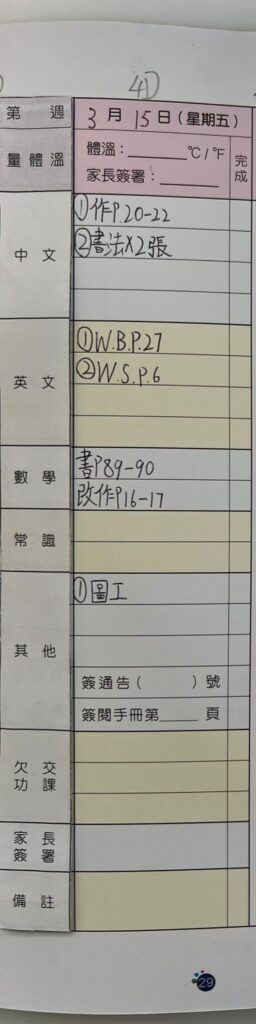 4D
第 週
3 月 15 日 (星期五)
量體溫
體溫:______ °C/°F
家長簽署:______
完成
中文
①作P.20-22
②書法X2張
英文
①W.B.P.27
②W.S.P.6
數學
書P89-90
改作P16-17
常識
其他
①圖工
簽通告( )號
簽閱手冊第_____頁
欠交功課
家長簽署
備註
29